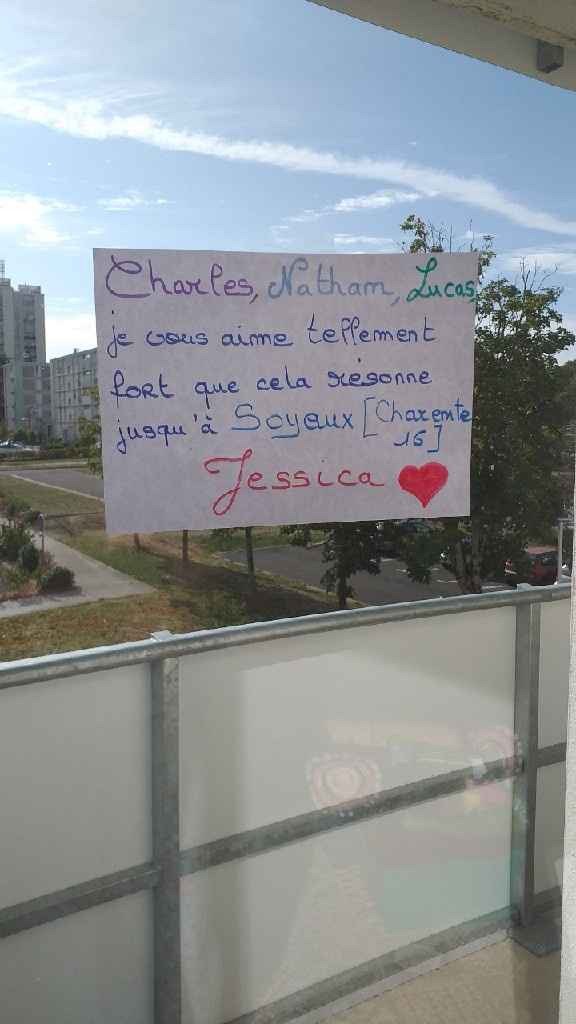 Charles, Natham, Lucas,
je vous aime tellement
fort que cela résonne
jusqu'à Soyaux [Charente
16]
Jessica